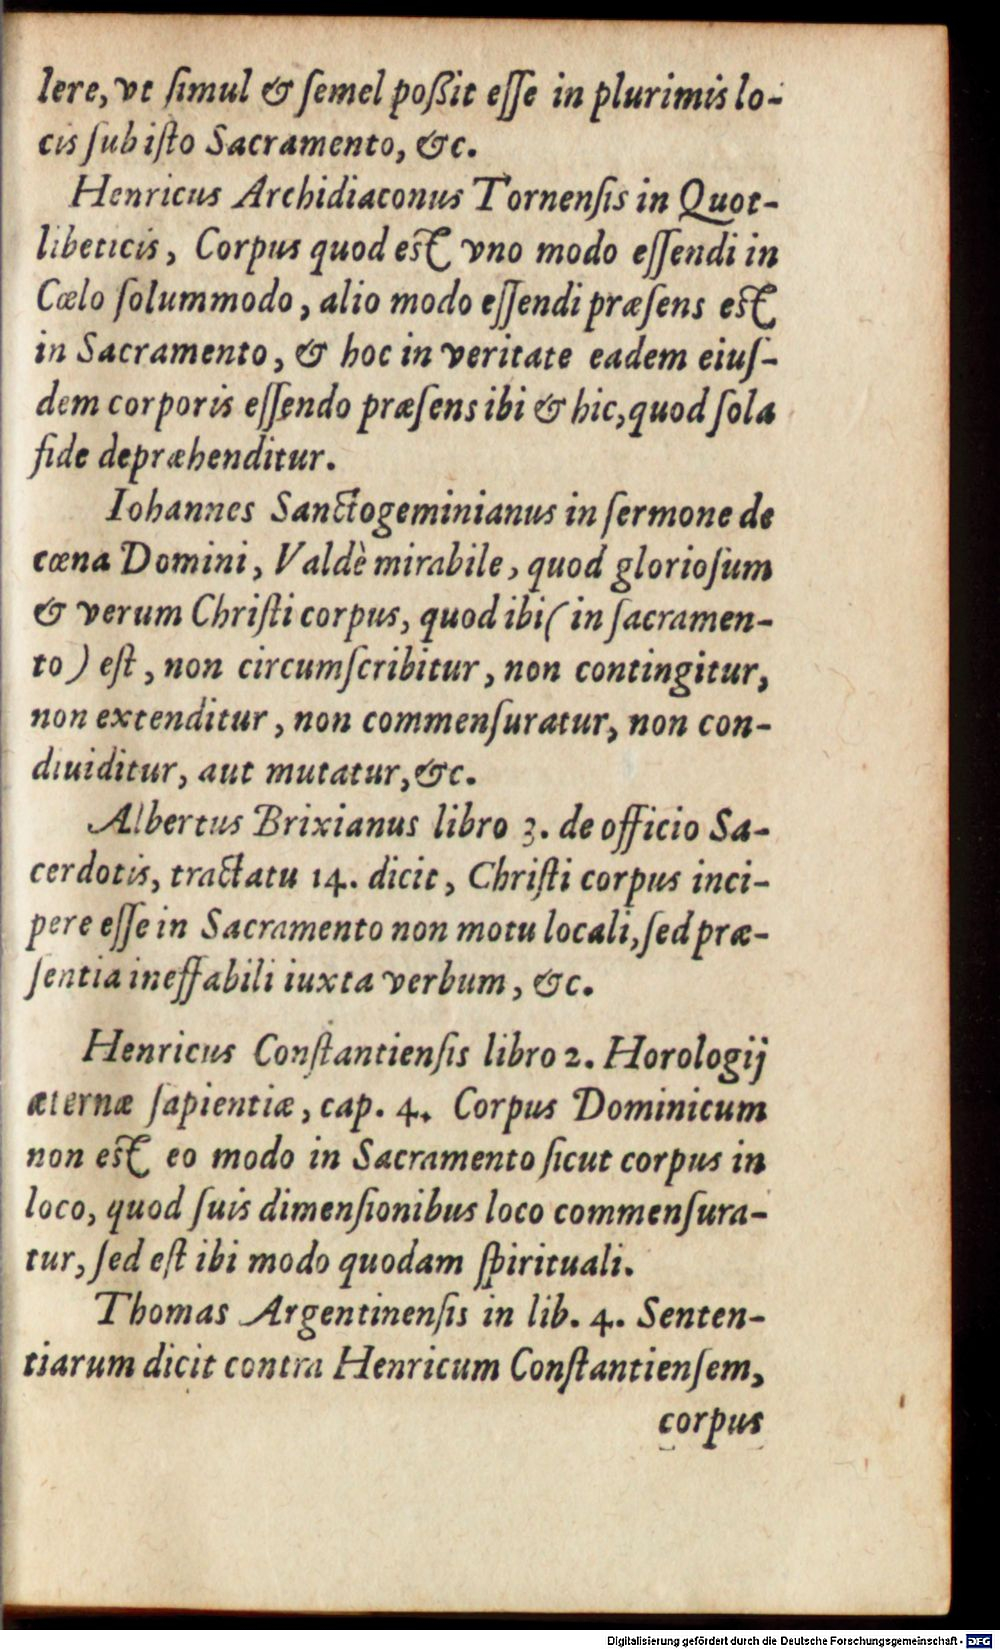 lere, vt ſimul & ſemel poßit eſſe in plurimis lo-
cis ſub iſto Sacramento, &c.
Henricus Archidiaconus Tornenſis in Quot-
libeticis, Corpus quod eſt vno modo eſſendi in
Cœlo ſolummodo, alio modo eſſendi præſens eſt
in Sacramento, & hoc in veritate eadem eiuſ-
dem corporis eſſendo præſens ibi & hic, quod ſola
fide depræhenditur.
Iohannes Sanctogeminianus in ſermone de
cœna Domini, Valdè mirabile, quod glorioſum
& verum Chriſti corpus, quod ibi (in ſacramen-
to) eſt, non circumſcribitur, non contingitur,
non extenditur, non commenſuratur, non con-
diuiditur, aut mutatur, &c.
Albertus Brixianus libro 3. de officio Sa-
cerdotis, tractatu 14. dicit, Chriſti corpus inci-
pere eſſe in Sacramento non motu locali, ſed præ-
ſentia ineffabili iuxta verbum, &c.
Henricus Conſtantienſis libro 2. Horologij
æternæ ſapientiæ, cap. 4. Corpus Dominicum
non eſt eo modo in Sacramento ſicut corpus in
loco, quod ſuis dimenſionibus loco commenſura-
tur, ſed eſt ibi modo quodam ſpirituali.
Thomas Argentinenſis in lib. 4. Senten-
tiarum dicit contra Henricum Conſtantienſem,
corpus
Digitalisierung gefördert durch die Deutsche Forschungsgemeinschaft - DFG